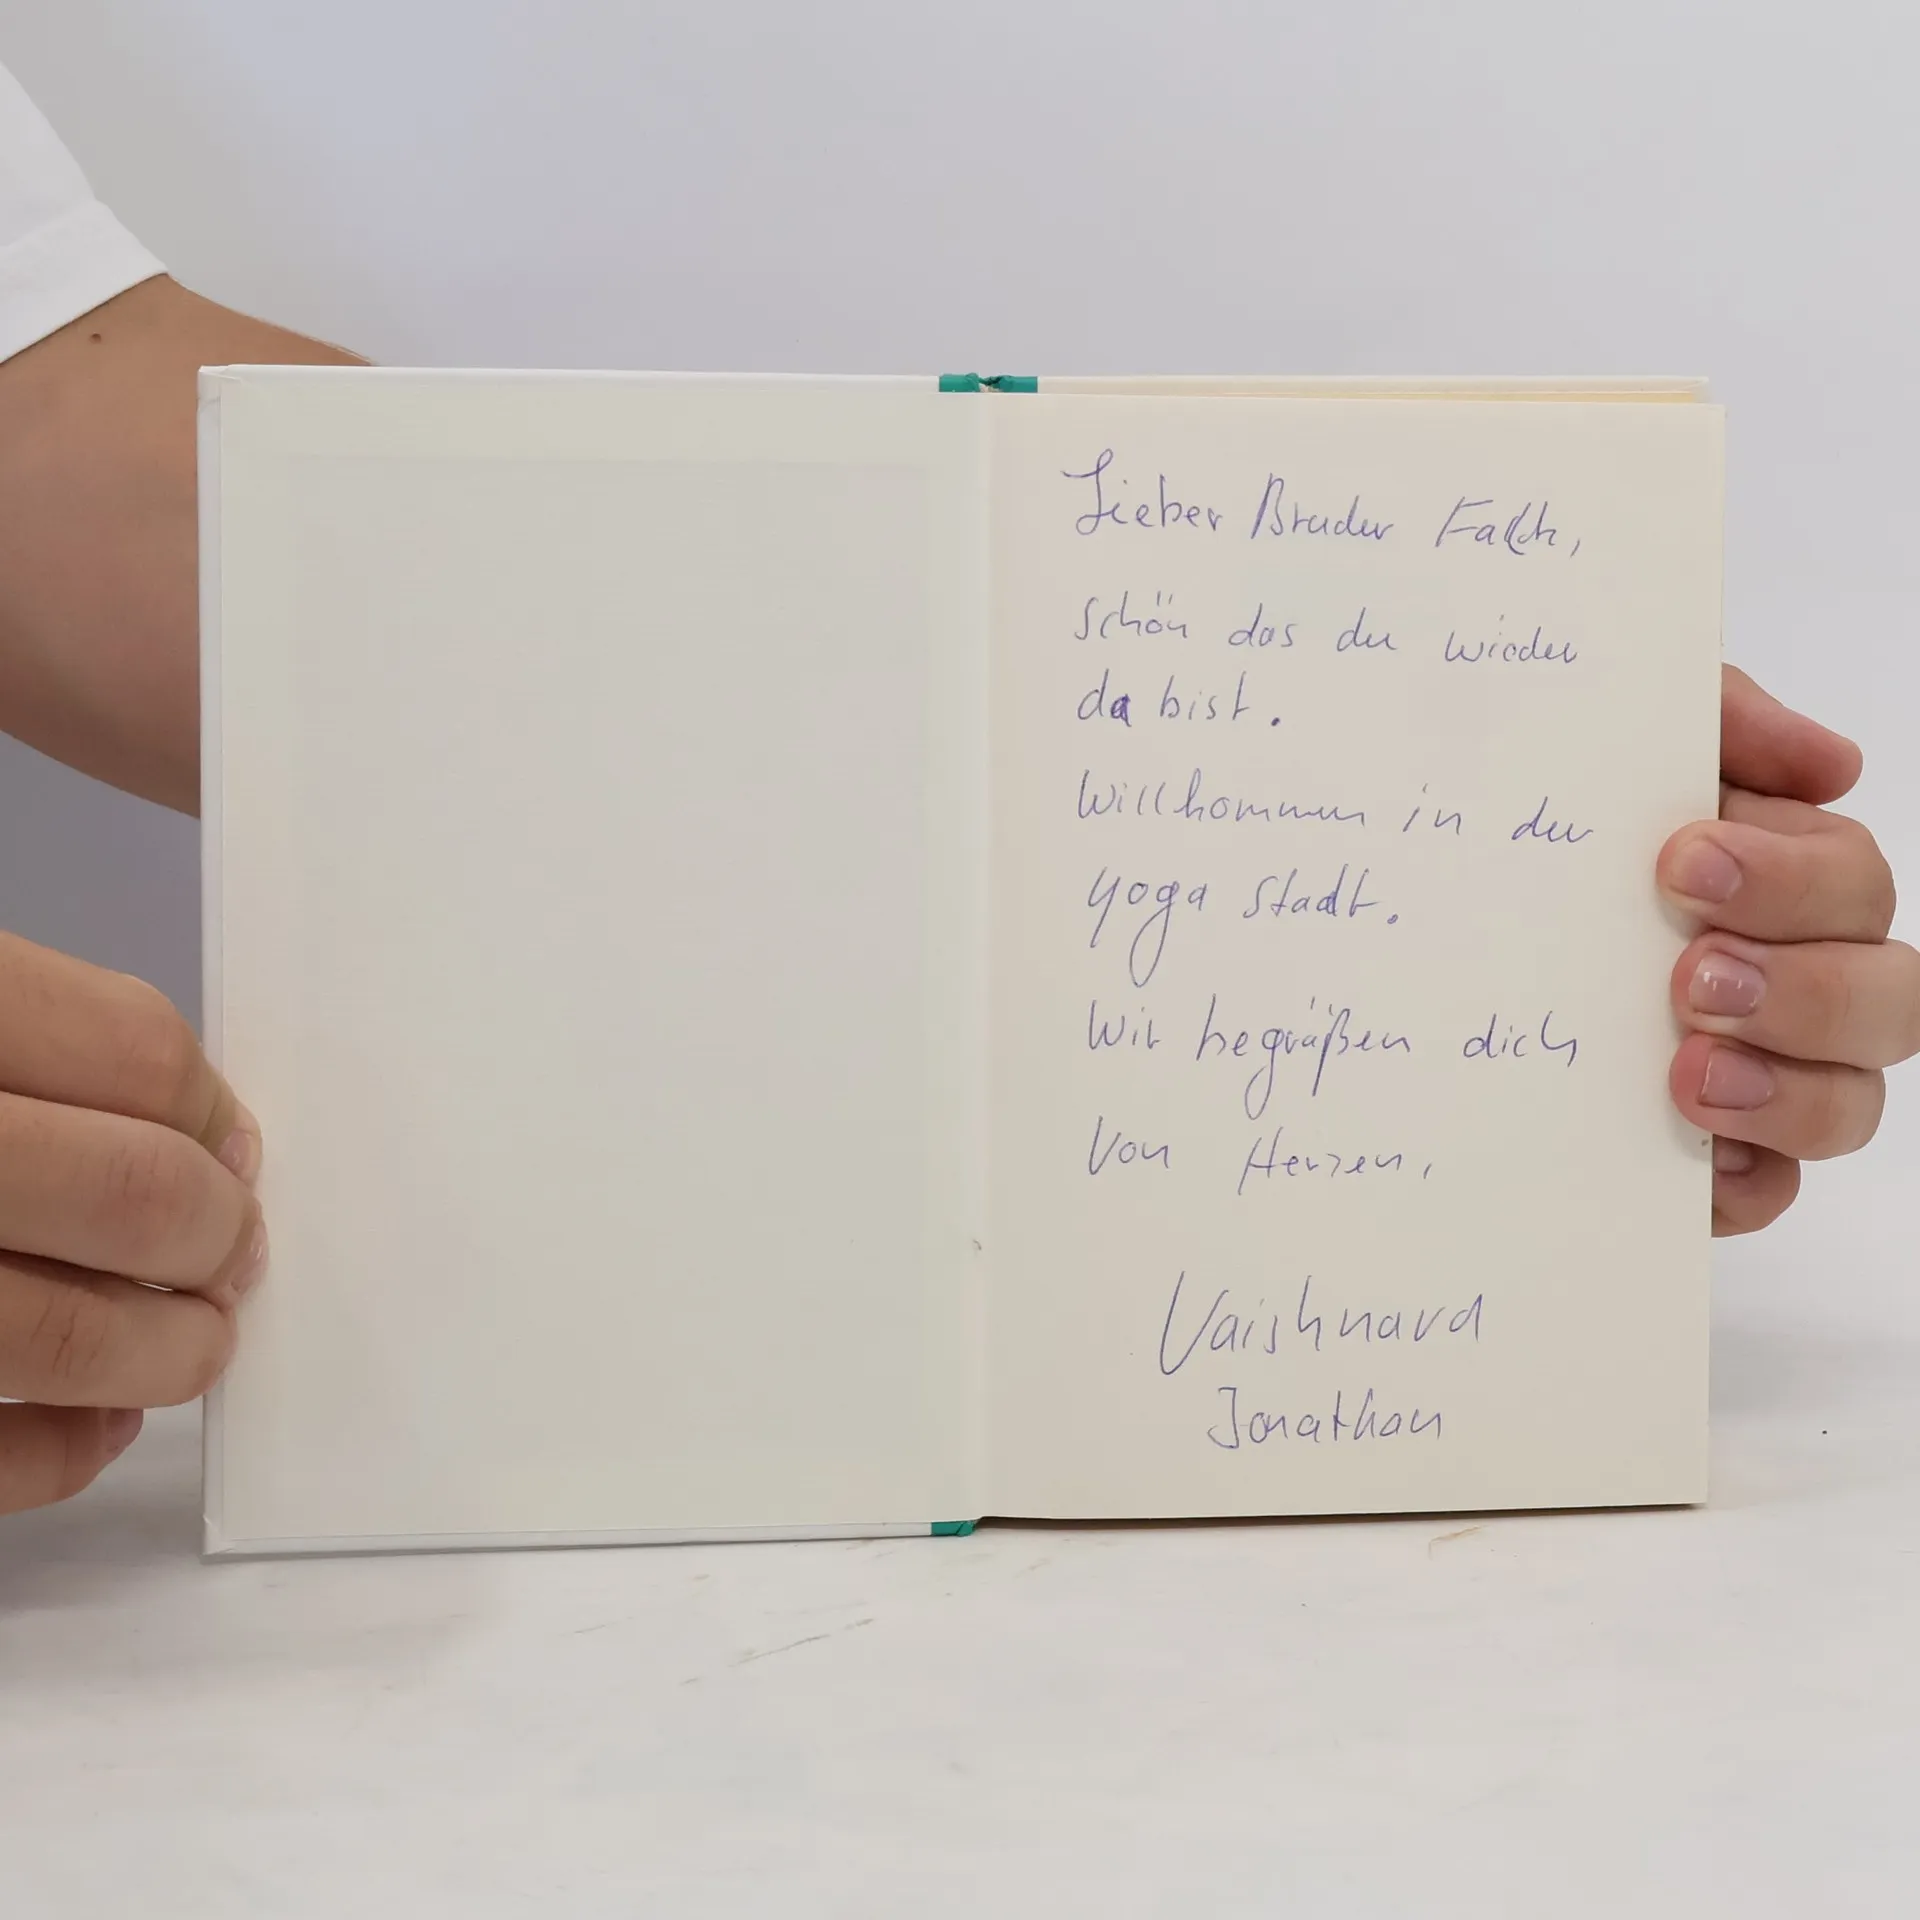 Lieber Bruder
schön das du wieder
da bist.
Willkommen in der
Yoga Stadt.
Wir begrüßen dich
Von Herzen,
Vaishnava
Jonathan